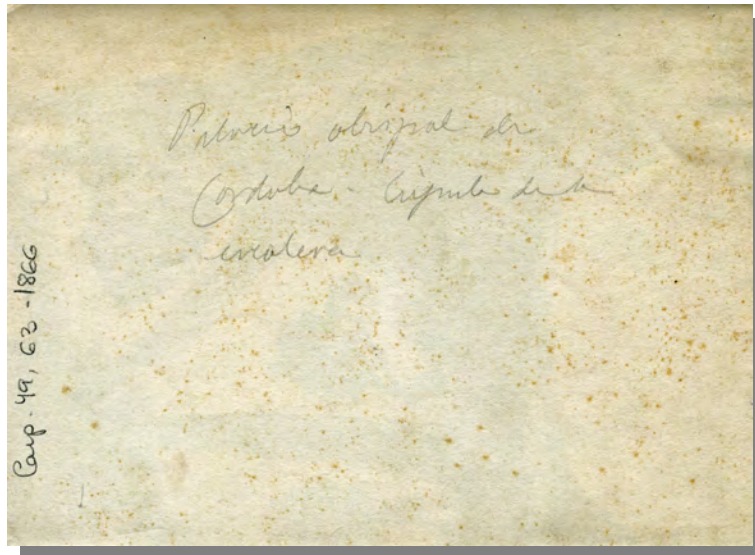 Palacio obispal de
Cordoba - Cúpula de la
escalera
Carp. 49, 63-1866